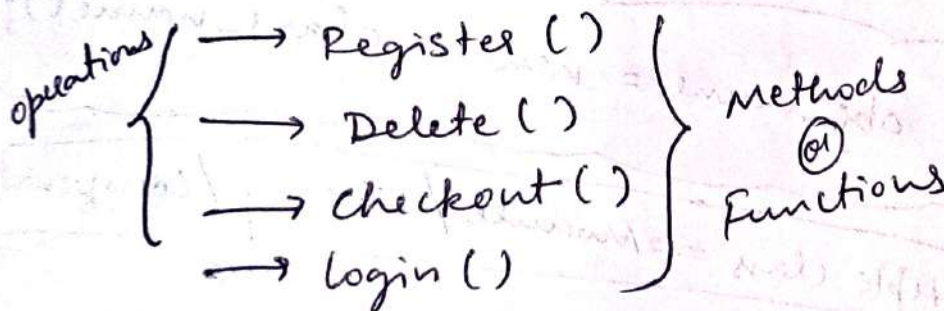 operations
→ Register ( )
→ Delete ( )
→ checkout ( )
→ login ( )
Methods
or
Functions